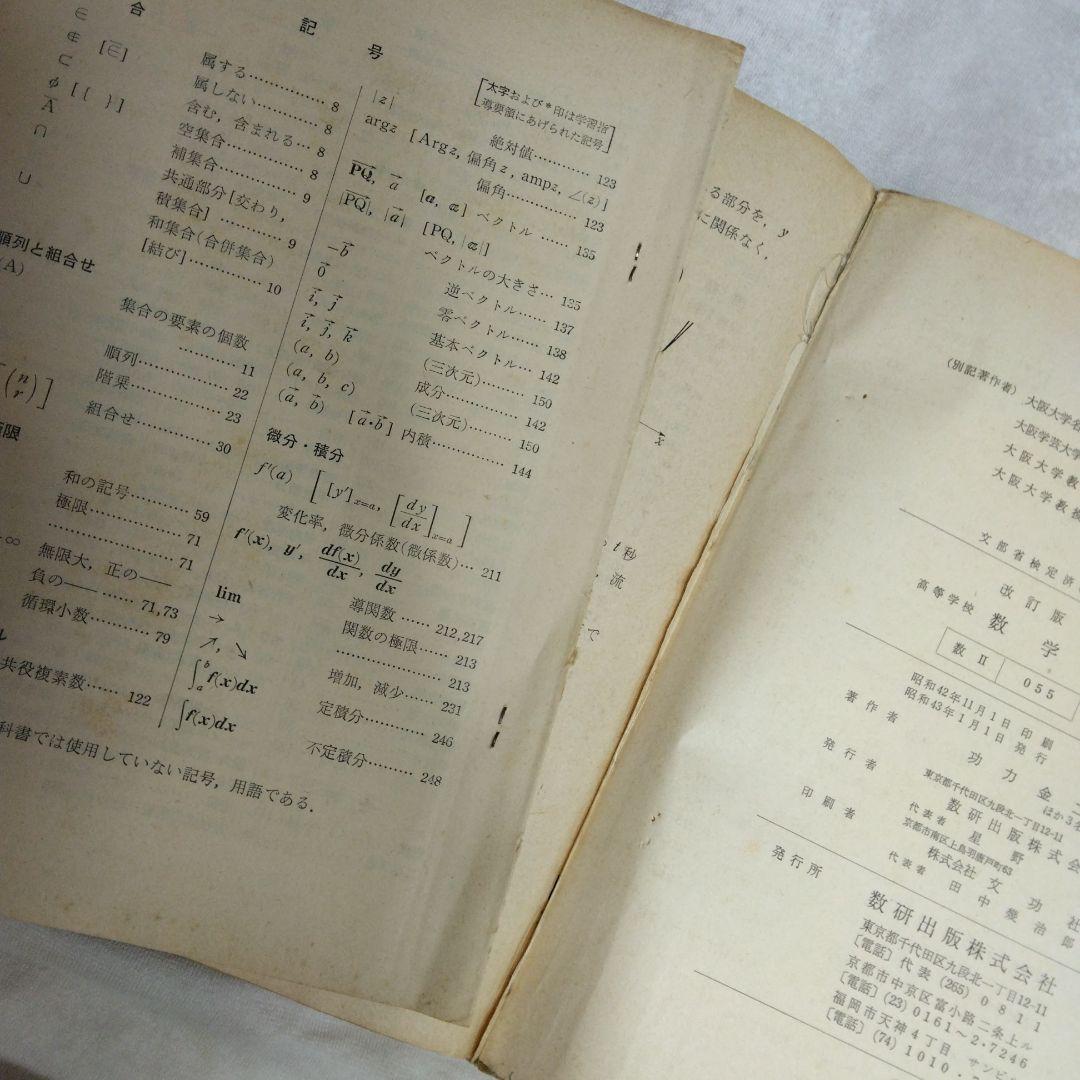 合 記 号
∈ 属する…………… 8
∉ [∈̅] 属しない………… 8
⊂ 含む，含まれる… 8
φ [{ }] 空集合…………… 8
A̅ 補集合…………… 9
∩ 共通部分[交わり，
積集合]………… 9
∪ 和集合(合併集合)
[結び]………… 10
順列と組合せ
(A) 集合の要素の個数
………… 11
順列…………… 22
階乗…………… 23
[(n r)] 組合せ………… 30
限
和の記号……… 59
極限…………… 71
………………… 71
∞ 無限大，正の── 
負の──…… 71,73
循環小数……… 79
ル
共役複素数…… 122
科書では使用していない記号，用語である．
[太字および*印は学習指
導要領にあげられた記号]
|z| 絶対値………… 123
argz [Argz, 偏角z, ampz, ∠(z)]
偏角………… 123
PQ→, a→ [a, a] ベクトル …… 135
|PQ→|, |a→| [PQ, |a|]
ベクトルの大きさ… 135
−b→ 逆ベクトル…… 137
0→ 零ベクトル…… 138
i→, j→ 基本ベクトル… 142
i→, j→, k→ (三次元)……… 150
(a, b) 成分…………… 142
(a, b, c) (三次元)……… 150
(a→, b→) [a→・b→] 内積…………… 144
微分・積分
f′(a) [[y′]x=a, [dy/dx]x=a]
変化率，微分係数(微係数)… 211
f′(x), y′, df(x)/dx, dy/dx
導関数 …… 212,217
lim 関数の極限…… 213
→ ………………… 213
↗, ↘ 増加，減少…… 231
∫ₐᵇf(x)dx 定積分………… 246
∫f(x)dx 不定積分……… 248
る部分を，y
に関係なく，
x
t秒
，流
で
(別記著作者) 大阪大学
大阪学芸大学
大阪大学教
大阪大学教授
文部省検定済
改訂版
高等学校 数学
数 Ⅱ 055
昭和42年11月1日 印刷
昭和43年1月1日 発行
著作者 功力金二
ほか3名
発行者 東京都千代田区九段北一丁目12-11
数研出版株式会
代表者 星野
印刷者 京都市南区上鳥羽唐戸町63
株式会社 文功社
代表者 田中幾治郎
発行所 数研出版株式会社
東京都千代田区九段北一丁目12-11
〔電話〕代表 (265) 0811
京都市中京区富小路二条上ル
〔電話〕(23)0161～2・7246
福岡市天神4丁目 サンビ
〔電話〕(74)1010・